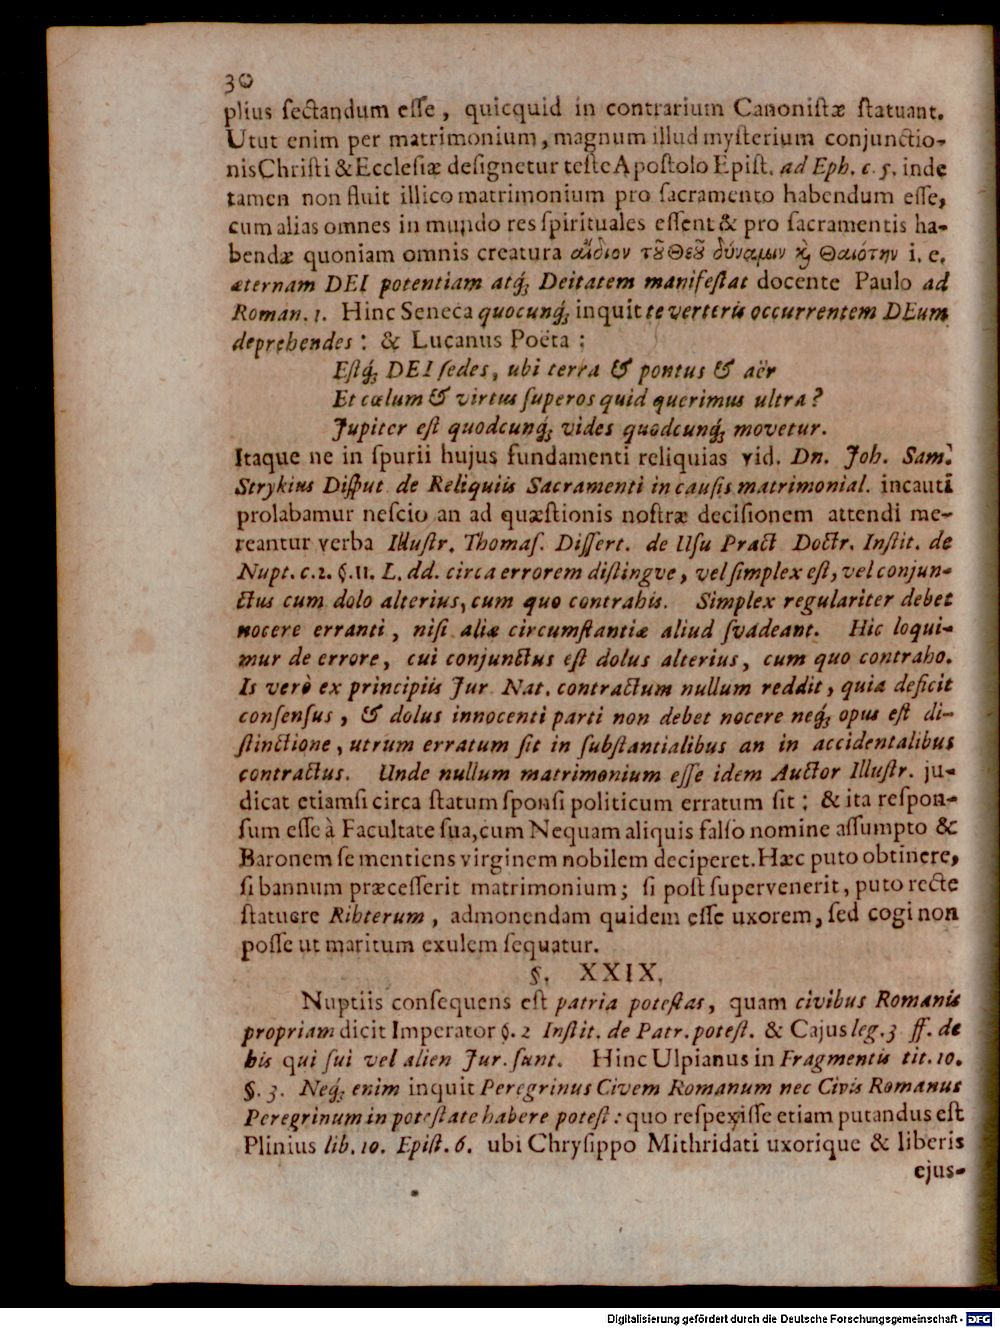 30
plius sectandum esse, quicquid in contrarium Canonistæ statuant.
Utut enim per matrimonium, magnum illud mysterium conjunctio-
nis Christi & Ecclesiæ designetur teste Apostolo Epist. ad Eph. c. 5. inde
tamen non fluit illico matrimonium pro sacramento habendum esse,
cum alias omnes in mundo res spirituales essent & pro sacramentis ha-
bendæ quoniam omnis creatura ἀΐδιον τȣ͂ Θεȣ͂ δύναμιν ϗ Θειότην i. e.
æternam DEI potentiam atq; Deitatem manifestat docente Paulo ad
Roman. 1. Hinc Seneca quocunq; inquit te verteris occurrentem DEum
deprehendes: & Lucanus Poëta:
Estq; DEI sedes, ubi terra & pontus & aër
Et cœlum & virtus superos quid querimus ultra?
Jupiter est quodcunq; vides quodcunq; movetur.
Itaque ne in spurii hujus fundamenti reliquias vid. Dn. Joh. Sam.
Strykius Disput de Reliquiis Sacramenti in causis matrimonial. incauti
prolabamur nescio an ad quæstionis nostræ decisionem attendi me-
reantur verba Illustr. Thomas. Dissert. de Usu Pract Doctr. Instit. de
Nupt. c. 2. §. 11. L. dd. circa errorem distingve, vel simplex est, vel conjun-
ctus cum dolo alterius, cum quo contrahis. Simplex regulariter debet
nocere erranti, nisi aliæ circumstantiæ aliud svadeant. Hic loqui-
mur de errore, cui conjunctus est dolus alterius, cum quo contraho.
Is verò ex principiis Jur. Nat. contractum nullum reddit, quia deficit
consensus, & dolus innocenti parti non debet nocere neq; opus est di-
stinctione, utrum erratum sit in substantialibus an in accidentalibus
contractus. Unde nullum matrimonium esse idem Auctor Illustr. ju-
dicat etiamsi circa statum sponsi politicum erratum sit; & ita respon-
sum esse à Facultate sua, cum Nequam aliquis falso nomine assumpto &
Baronem se mentiens virginem nobilem deciperet. Hæc puto obtinere,
si bannum præcesserit matrimonium; si post supervenerit, puto recte
statuere Rihterum, admonendam quidem esse uxorem, sed cogi non
posse ut maritum exulem sequatur.
§. XXIX.
Nuptiis consequens est patria potestas, quam civibus Romanis
propriam dicit Imperator §. 2 Instit. de Patr. potest. & Cajus leg. 3 ff. de
his qui sui vel alien Jur. sunt. Hinc Ulpianus in Fragmentis tit. 10.
§. 3. Neq; enim inquit Peregrinus Civem Romanum nec Civis Romanus
Peregrinum in potestate habere potest: quo respexisse etiam putandus est
Plinius lib. 10. Epist. 6. ubi Chrysippo Mithridati uxorique & liberis
ejus-
Digitalisierung gefördert durch die Deutsche Forschungsgemeinschaft - DFG